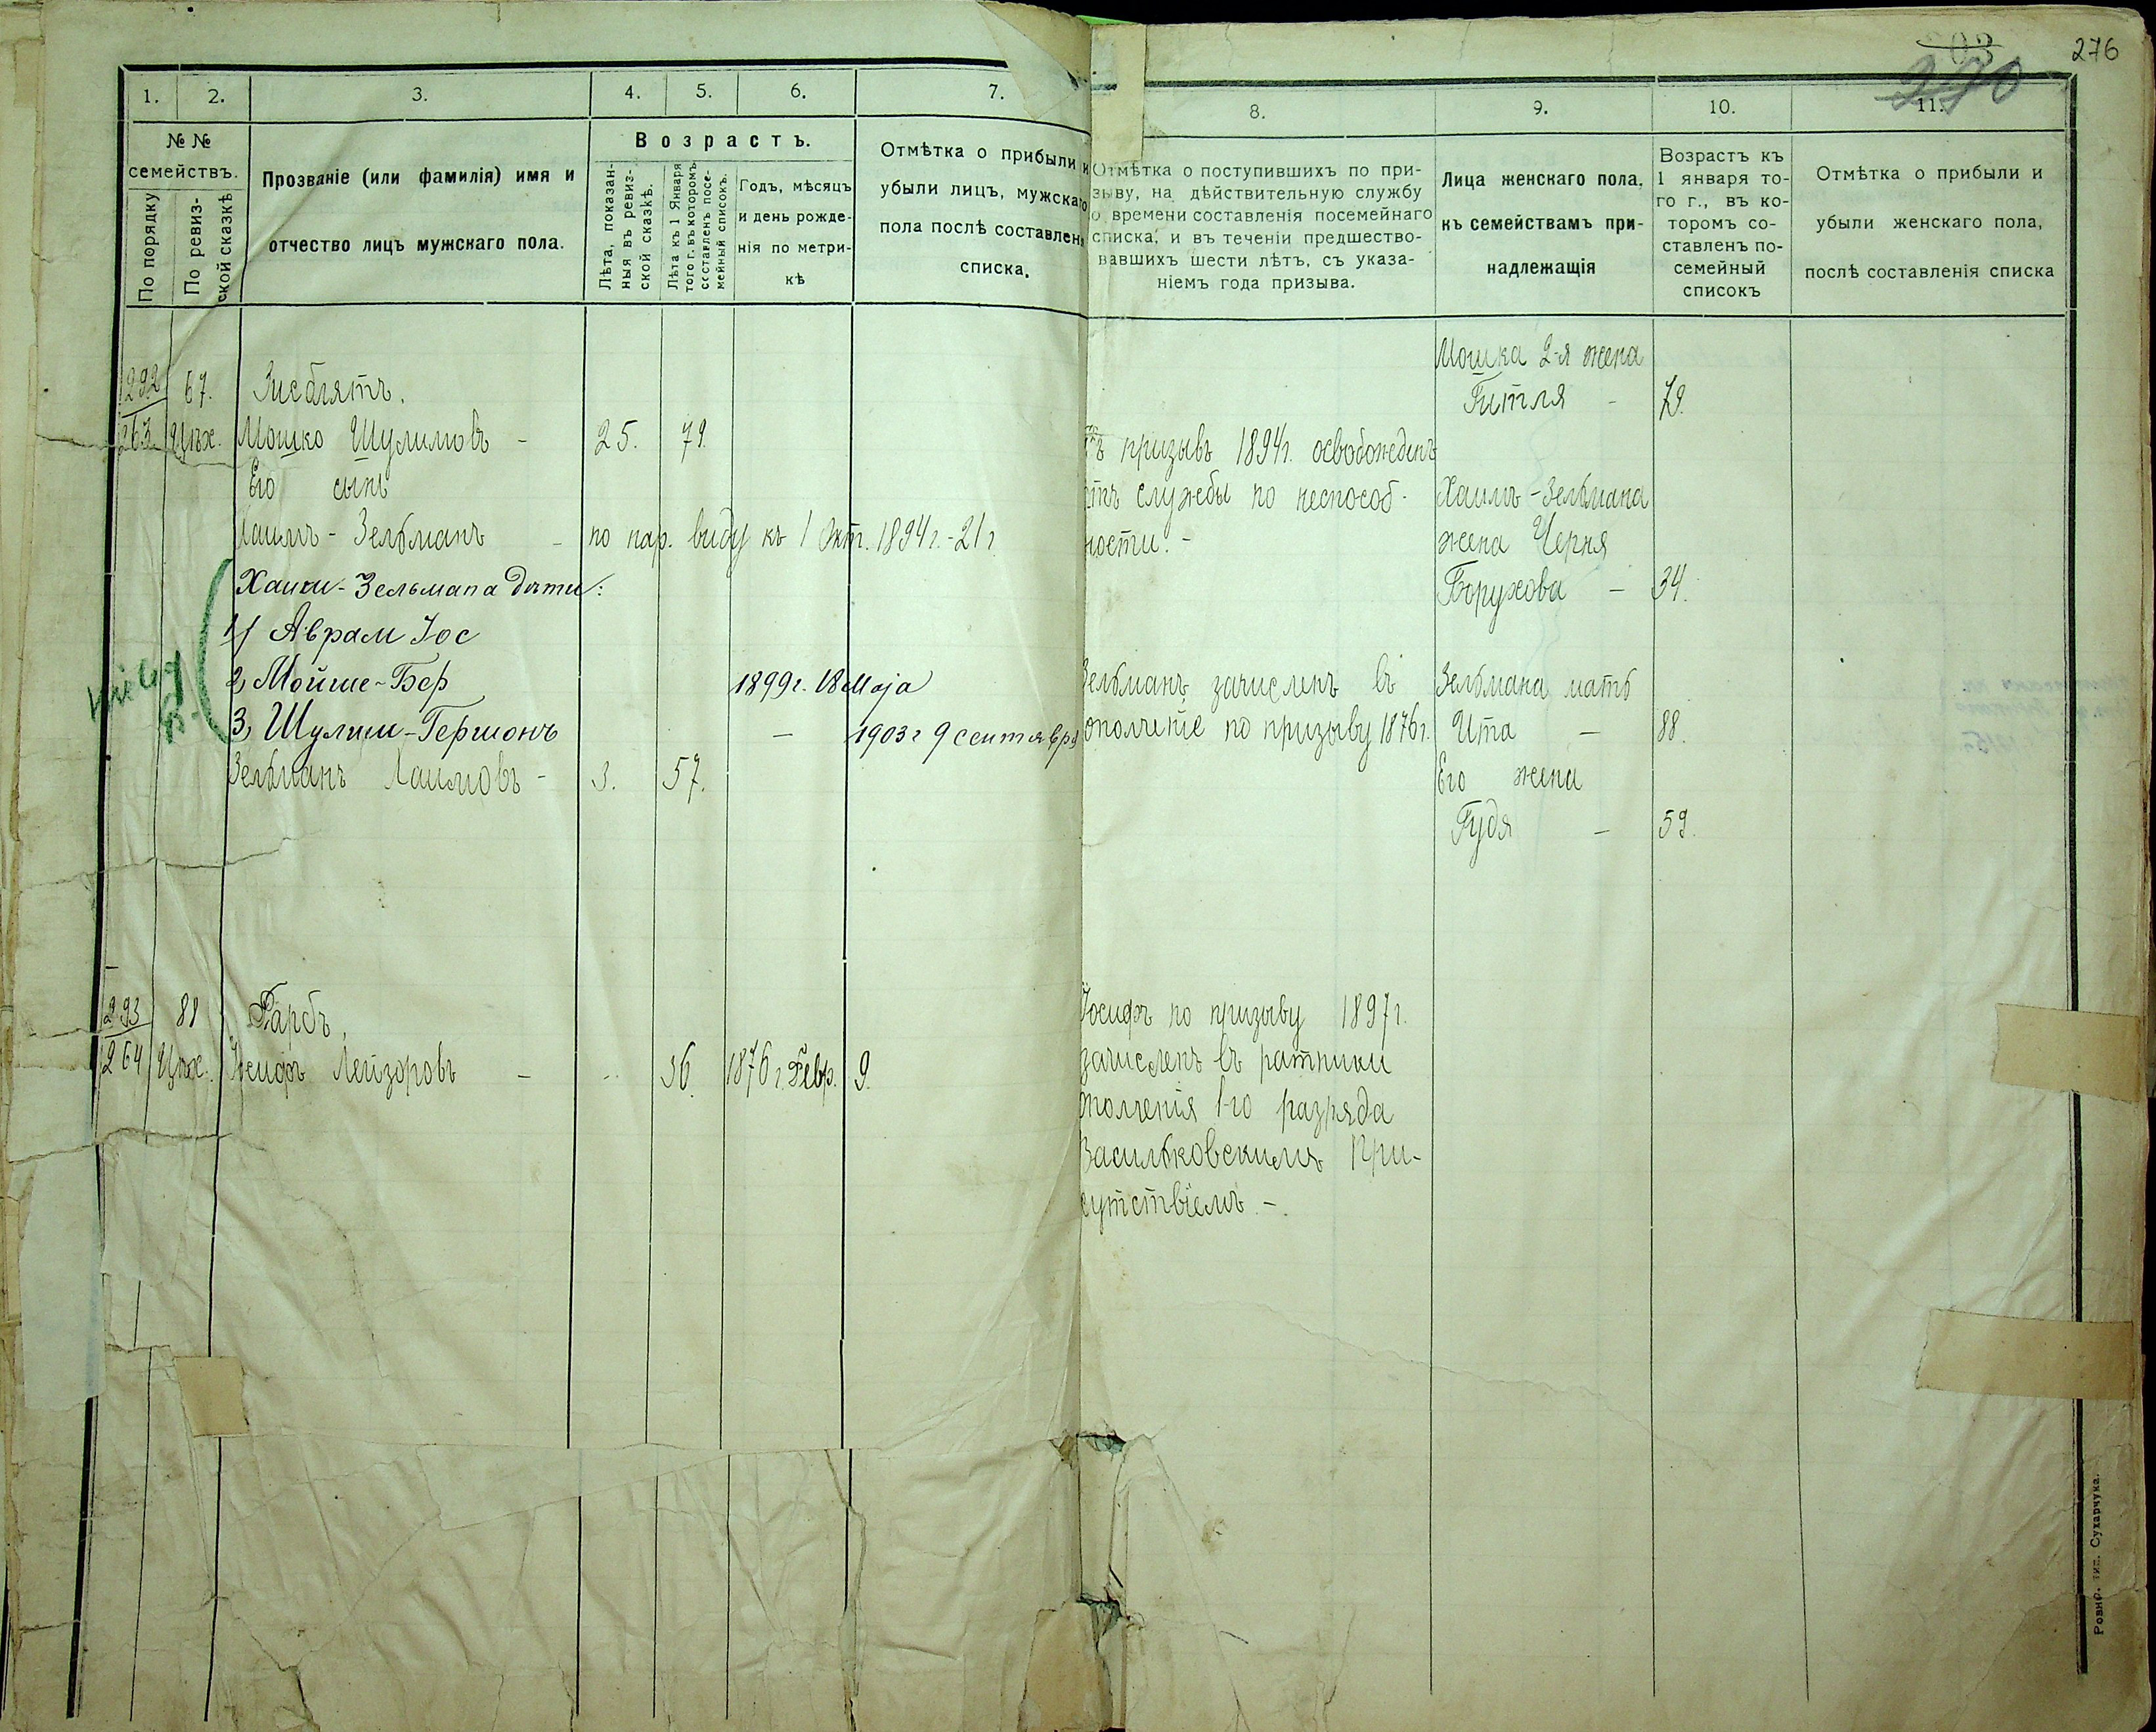 276
270
1. 2. 3. 4. 5. 6. 7. 8. 9. 10. 11.
№ №
семействъ.
По порядку
По ревиз-
ской сказкѣ
Прозваніе (или фамилія) имя и
отчество лицъ мужскаго пола.
Возрастъ.
Лѣта, показан-
ныя въ ревиз-
ской сказкѣ.
Лѣта къ 1 Января
того г. въ которомъ
составленъ посе-
мейный списокъ.
Годъ, мѣсяцъ
и день рожде-
нія по метри-
кѣ
Отмѣтка о прибыли и
убыли лицъ, мужскаго
пола послѣ составлен
списка.
Отмѣтка о поступившихъ по при-
зыву, на дѣйствительную службу
о времени составленія посемейнаго
списка, и въ теченіи предшество-
вавшихъ шести лѣтъ, съ указа-
ніемъ года призыва.
Лица женскаго пола,
къ семействамъ при-
надлежащія
Возрастъ къ
1 января то-
го г., въ ко-
торомъ со-
ставленъ по-
семейный
списокъ
Отмѣтка о прибыли и
убыли женскаго пола,
послѣ составленія списка
292 67. Зисблятъ.
263 Цех. Мошко Шулимовъ - 25. 79.
Его сынъ
Хаимъ-Зельманъ - по нар. виду къ 1 Окт. 1894 г. - 21 г.
Хаим-Зельмана дѣти:
1/ Аврам Іос
2, Мойше-Бер 1899 г. 18 Maja
3, Шулим-Гершонъ — 1903 г 9 сентября
Зельманъ Хаимовъ - 3. 57.
въ призывъ 1894 г. освобожденъ
отъ службы по неспособ-
ности. -
Зельманъ зачисленъ въ
ополченіе по призыву 1876 г.
Мошка 2-я жена
Гитля - 79.
Хаимъ-Зельмана
жена Черня
Борухова - 34.
Зельмана мать
Ита - 88.
Его жена
Гудя - 59.
293 88 Фарбъ.
264 Цех. Іосифъ Лейзоровъ - - 36. 1876 г. Февр. 9.
Іосифъ по призыву 1897 г.
зачисленъ въ ратники
ополченія 1-го разряда
Васильковскимъ При-
сутствіемъ. -
Ровно. тип. Сухарчука.